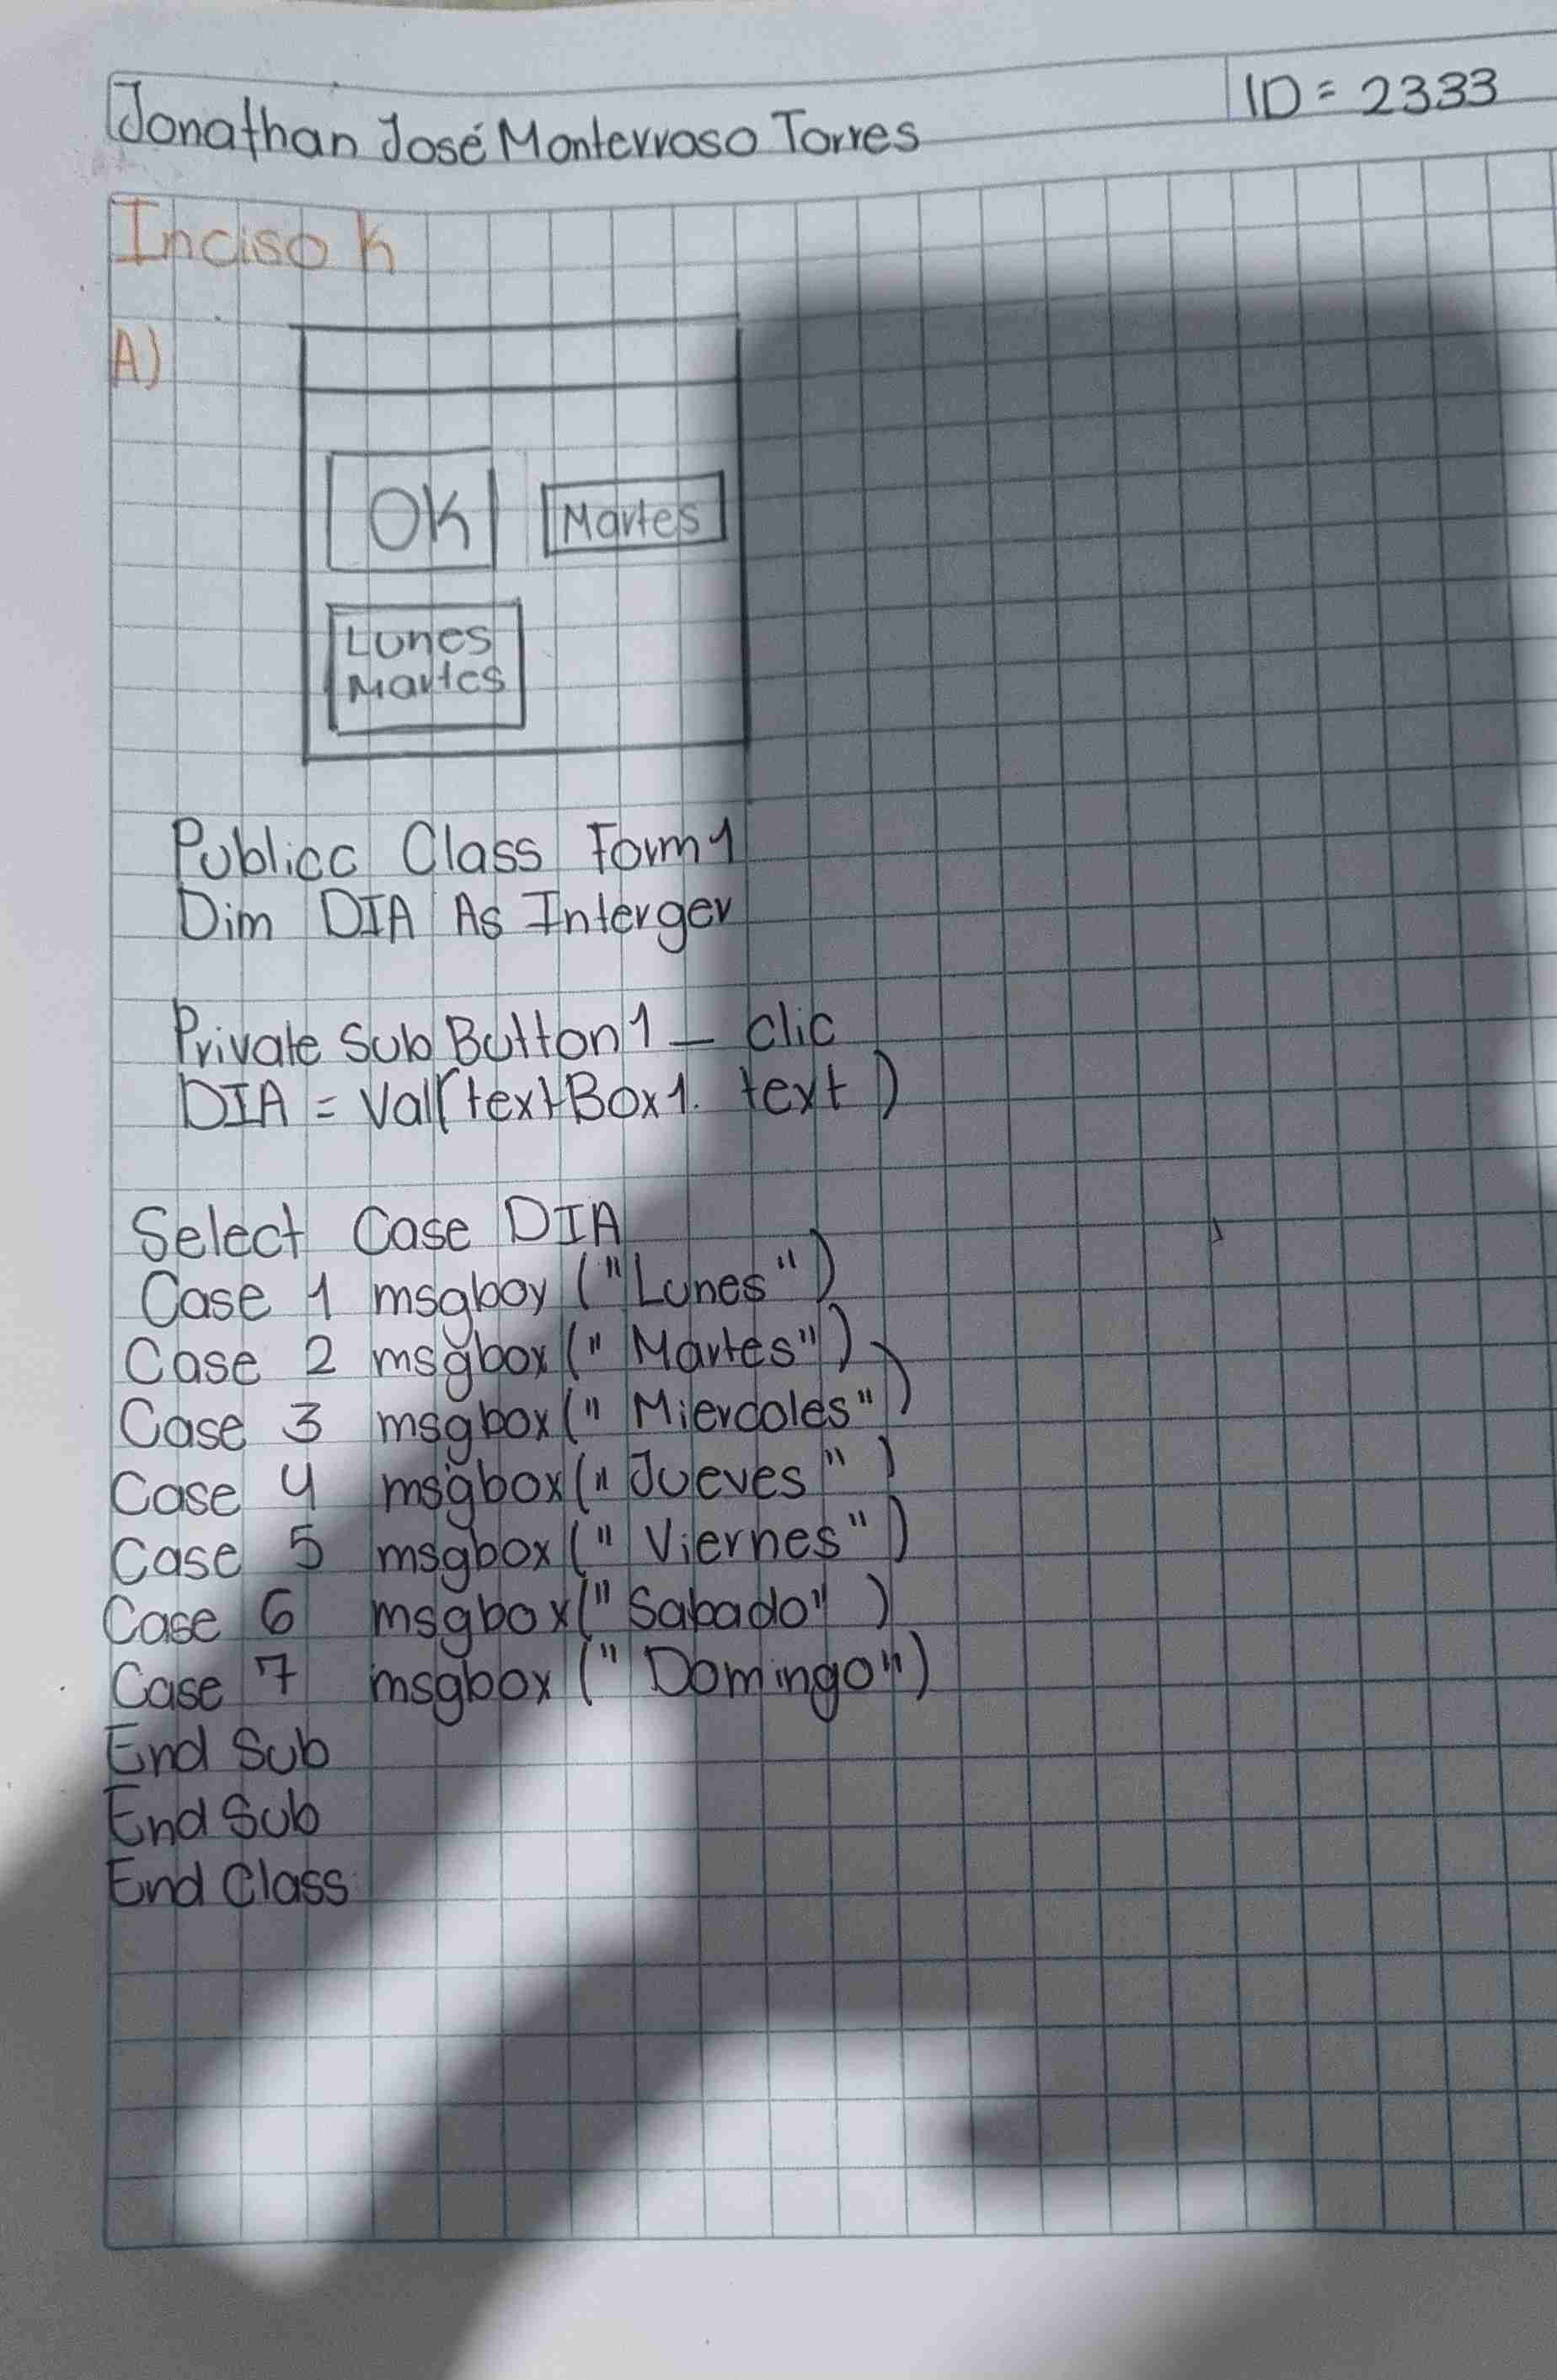 Jonathan José Monterroso Torres
ID = 2333
Inciso K
A)
OK
Martes
Lunes
Martes
Publicc Class Form1
Dim DIA As Interger
Private Sub Button1_clic
DIA = Val(textBox1.text)
Select Case DIA
Case 1 msgboy ("Lunes")
Case 2 msgbox (" Martes")
Case 3 msgbox (" Miercoles")
Case 4 msgbox (" Jueves")
Case 5 msgbox (" Viernes")
Case 6 msgbox ("Sabado")
Case 7 msgbox (" Domingo")
End Sub
End Sub
End Class